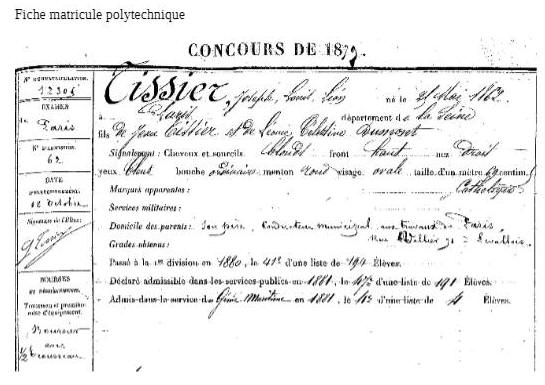 Fiche matricule polytechnique
CONCOURS DE 1879.
N° D'IMMATRICULATION.
12306
EXAMEN
de Paris
N° D'ADMISSION.
62
DATE
12 Octobre
Signature de l'Élève:
G. Tissier
BOURSES
Boursier
avec
1/2 trousseau
Tissier, Joseph, Louis, Léon né le 21 Mai 1862
à Paris département de la Seine
fils de Jean Tissier et de Léonie Célestine Dumont
Signalement: Cheveux et sourcils blonds front haut nez droit
yeux bleus bouche ordinaire menton rond visage ovale taille d'un mètre 69 centim.
Marques apparentes: Catholique
Services militaires:
Domicile des parents: Son père, conducteur municipal aux travaux de Paris,
Rue Vallier 71 à Levallois.
Grades obtenus:
Passé à la 1re division en 1880, le 41e d'une liste de 194 Élèves.
Déclaré admissible dans les services publics en 1881, le 47e d'une liste de 191 Élèves.
Admis dans le service du Génie Maritime en 1881, le 4e d'une liste de 4 Élèves.